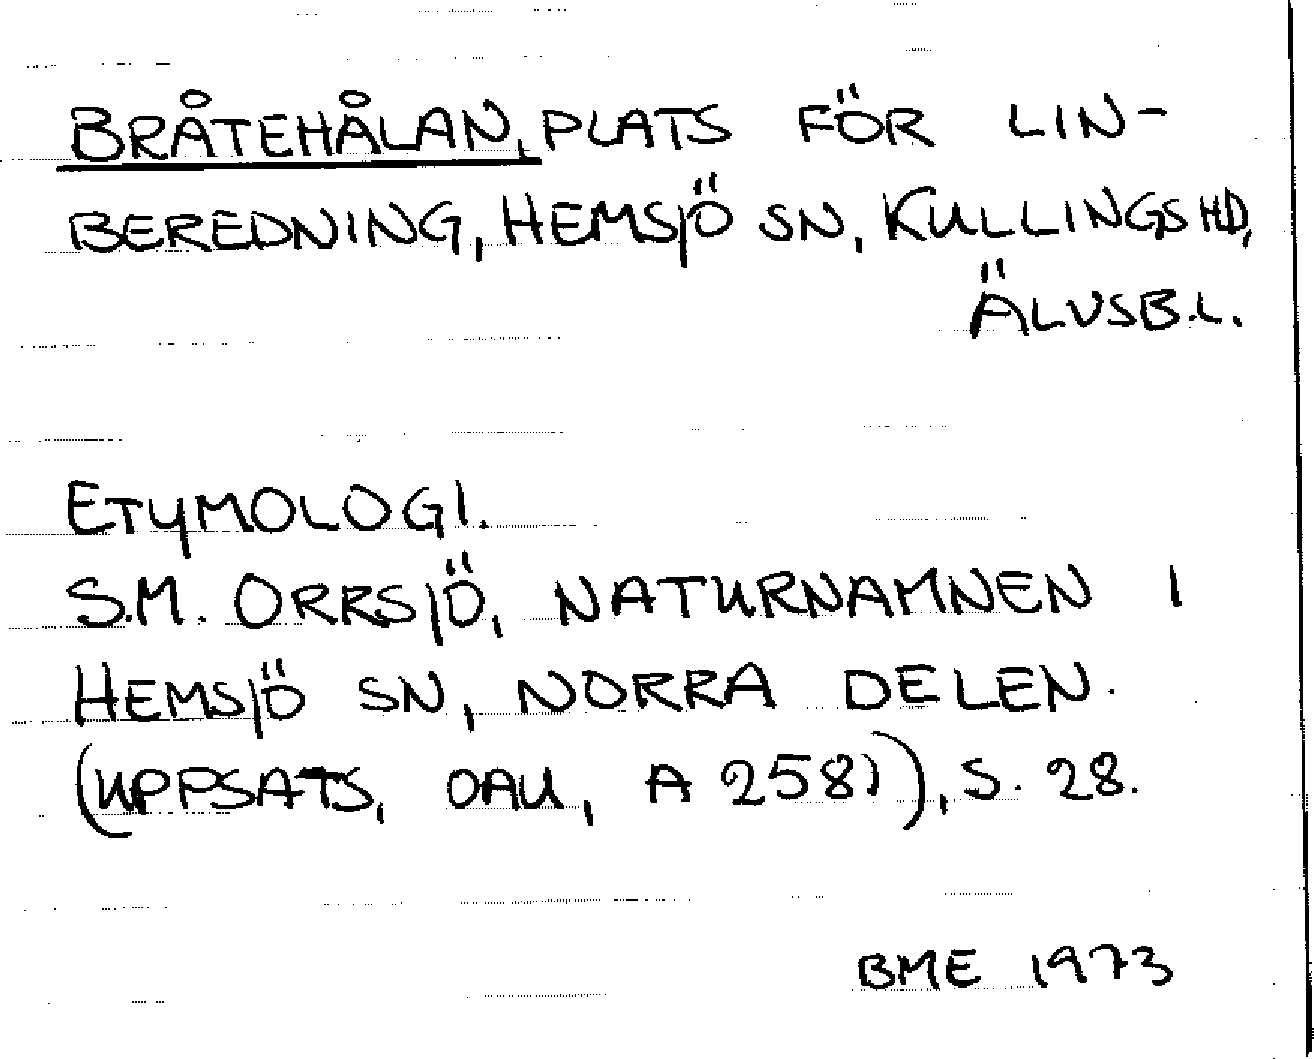 BRÅTEHÅLAN, PLATS FÖR LIN-
BEREDNING, HEMSJÖ SN, KULLINGS HD,
ÄLVSB.L.
ETYMOLOGI.
S.M. ORRSJÖ, NATURNAMNEN I
HEMSJÖ SN, NORRA DELEN.
(UPPSATS, OAU, A 2581), S. 28.
BME 1973